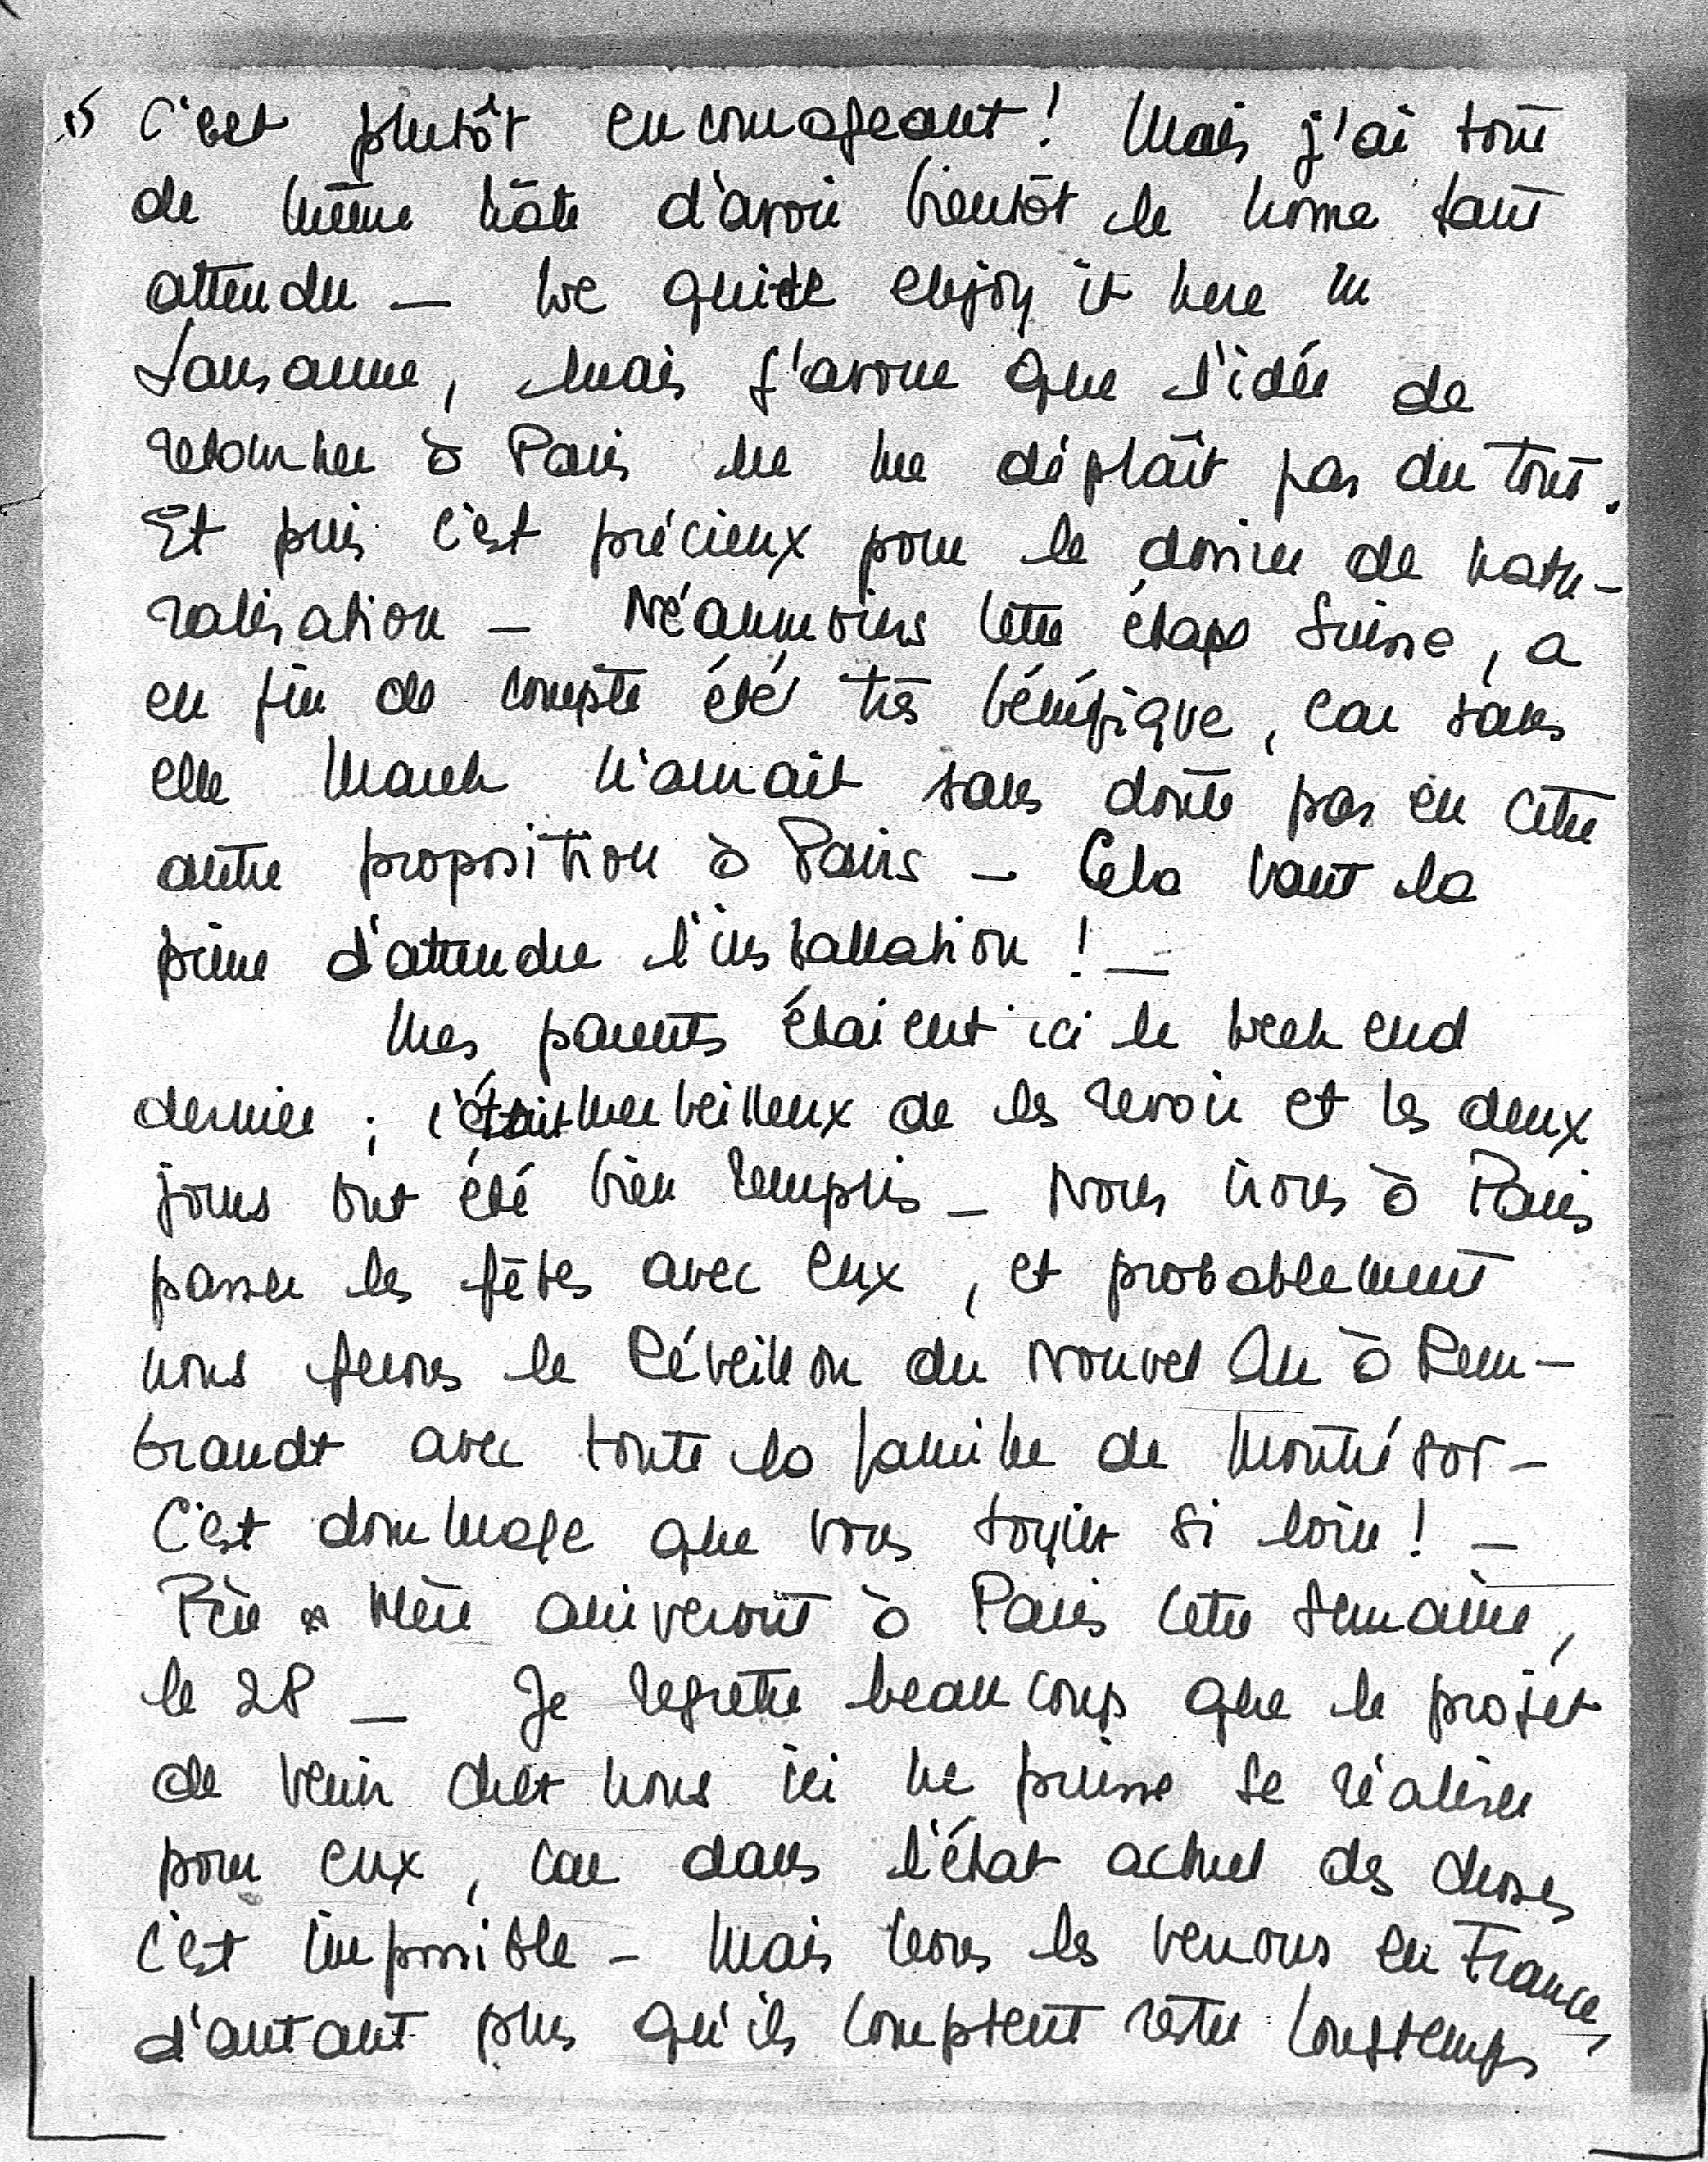 C'est plutôt encourageant ! Mais j'ai tout
de même hâte d'avoir bientôt le home tant
attendu — We quite enjoy it here in
Lausanne, mais j'avoue que l'idée de
retourner à Paris ne me déplaît pas du tout.
Et puis c'est précieux pour le dossier de natu-
ralisation — Néanmoins cette étape Suisse, a
en fin de compte été très bénéfique, car sans
elle Marek n'aurait sans doute pas eu cette
autre proposition à Paris — Cela vaut la
peine d'attendre l'installation ! —
Mes parents étaient ici le week end
dernier ; c'était merveilleux de les revoir et les deux
jours ont été bien remplis — Nous irons à Paris
passer les fêtes avec eux, et probablement
nous ferons le Réveillon du Nouvel An à Rem-
brandt avec toute la famille de Montrésor —
C'est dommage que vous soyiez si loin ! —
Père & Mère arriveront à Paris cette semaine,
le 28 — Je regrette beaucoup que le projet
de venir chez nous ici ne puisse se réaliser
pour eux, car dans l'état actuel des choses
c'est impossible — Mais nous les verrons en France,
d'autant plus qu'ils comptent rester longtemps